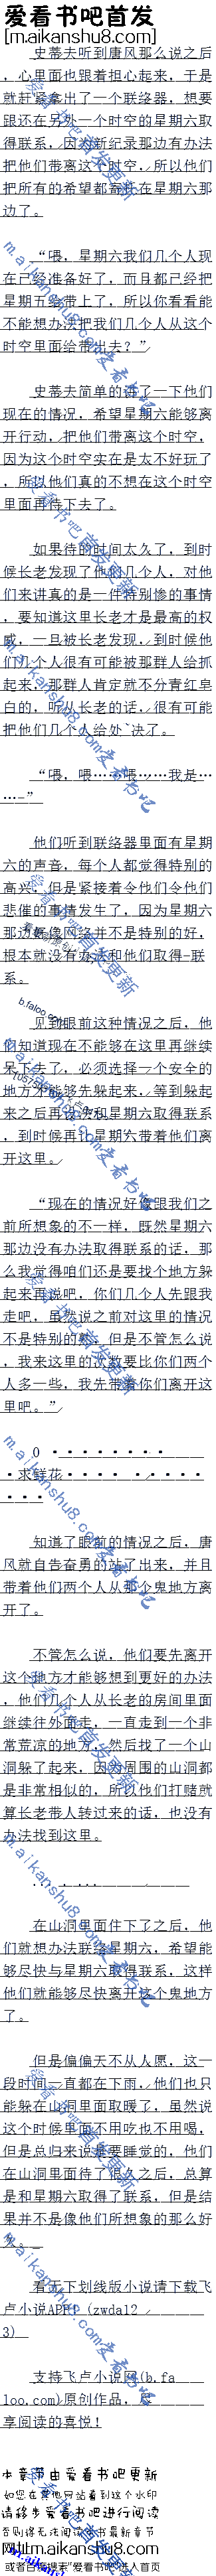 爱看书吧首发
[m.aikanshu8.com]
史蒂夫听到唐风那么说之后
，心里面也跟着担心起来，于是
就赶紧拿出了一个联络器，想要
跟还在另外一个时空的星期六取
得联系，因为新纪录那边有办法
把他们带离这个时空，所以他们
把所有的希望都寄托在星期六那
边了。
“喂，星期六我们几个人现
在已经准备好了，而且都已经把
星期五给带上了，所以你看看能
不能想办法把我们几个人从这个
时空里面给带出去？”
史蒂夫简单的讲了一下他们
现在的情况，希望星期六能够离
开行动，把他们带离这个时空，
因为这个时空实在是太不好玩了
，所以他们真的不想在这个时空
里面再待下去了。
如果待的时间太久了，到时
候长老发现了他们几个人，对他
们来讲真的是一件特别惨的事情
，要知道这里长老才是最高的权
威，一旦被长老发现，到时候他
们几个人很有可能被那群人给抓
起来，那群人肯定就不分青红皂
白的，听从长老的话，很有可能
把他们几个人给处`决了。
“喂，喂……喂……我是…
…-”
他们听到联络器里面有星期
六的声音，每个人都觉得特别的
高兴，但是紧接着令他们令他们
悲催的事情发生了，因为星期六
那边好像网络并不是特别的好，
根本就没有办法和他们取得-联
系。
见到眼前这种情况之后，他
们知道现在不能够在这里再继续
呆下去了，必须选择一个安全的
地方才能够先躲起来，等到躲起
来之后再设法和星期六取得联系
，到时候再让星期六带着他们离
开这里。
“现在的情况好像跟我们之
前所想象的不一样，既然星期六
那边没有办法取得联系的话，那
么我觉得咱们还是要找个地方躲
起来再说吧，你们几个人先跟我
走吧，虽然说之前对这里的情况
不是特别的熟，但是不管怎么说
，我来这里的次数要比你们两个
人多一些，我先带着你们离开这
里吧。”
0 ········
·求鲜花···· ·····
···
知道了眼前的情况之后，唐
风就自告奋勇的站了出来，并且
带着他们两个人从那个鬼地方离
开了。
不管怎么说，他们要先离开
这个地方才能够想到更好的办法
，他们几个人从长老的房间里面
继续往外面走，一直走到一个非
常荒凉的地方，然后找了一个山
洞躲了起来，因为周围的山洞都
是非常相似的，所以他们打赌就
算长老带人转过来的话，也没有
办法找到这里。
... . ...
在山洞里面住下了之后，他
们就想办法联络星期六，希望能
够尽快与星期六取得联系，这样
他们就能够尽快离开这个鬼地方
了。
但是偏偏天不从人愿，这一
段时间一直都在下雨，他们也只
能躲在山洞里面取暖了，虽然说
这个时候里面不用吃也不用喝，
但是总归来说是要睡觉的，他们
在山洞里面待了很久之后，总算
是和星期六取得了联系，但是结
果并不是像他们所想象的那么好
。
看无下划线版小说请下载飞
卢小说APP！(zwda12
3)
支持飞卢小说网(b.fa
loo.com)原创作品，尽
享阅读的喜悦！
本章节由爱看书吧更新
如您在其他网站看到这个水印
请移步爱看书吧进行阅读
否则得无法阅读本书最新章节
网址m.aikanshu8.com
或者百度搜索“爱看书吧”进入首页